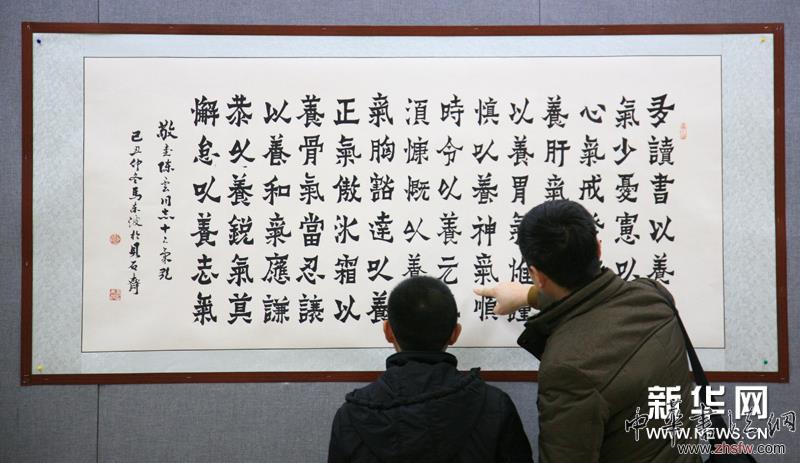 多讀書以養
氣少憂慮以
心氣戒
養肝氣
以養胃氣惟謹
慎以養神氣順
時令以養元
須慷慨以養
氣胸豁達以養
正氣傲氷霜以
養骨氣當忍讓
以養和氣應謙
恭以養銳氣莫
懈怠以養志氣
敬书陈云同志十二氣說
己丑仲冬馬东波於見石齋
新华网
WWW.NEWS.CN
中华書法網
www.zhsfw.com